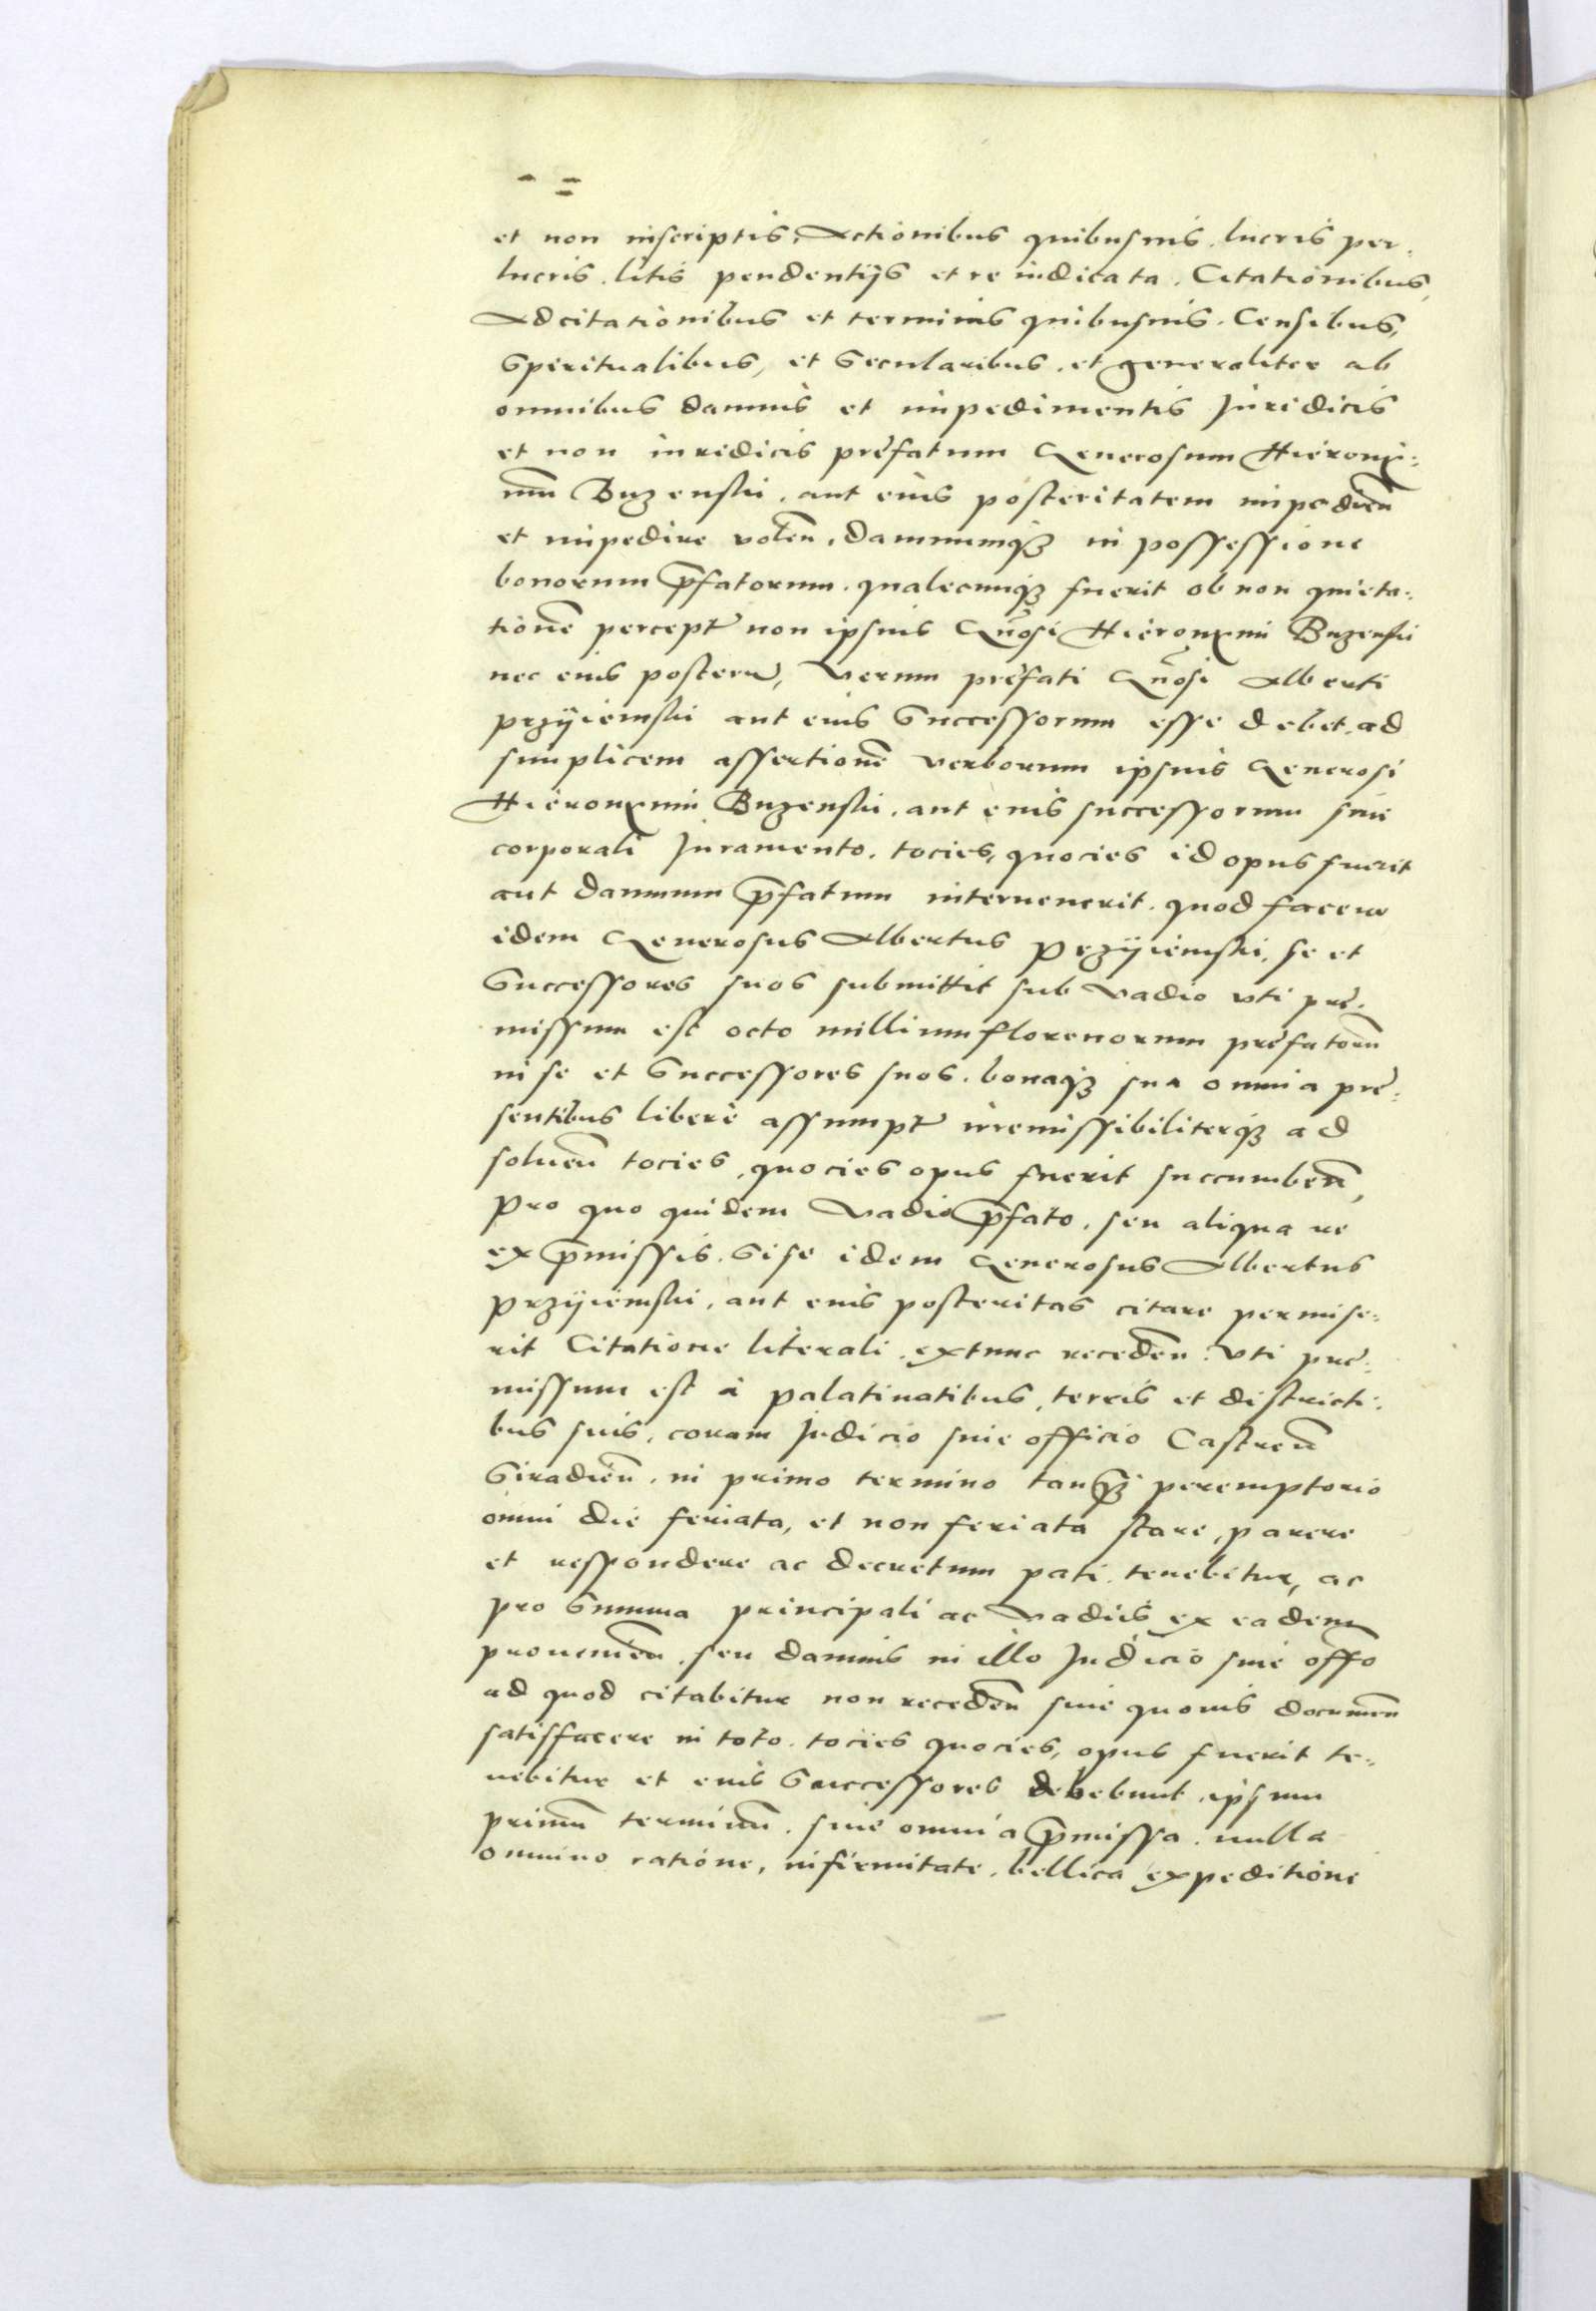 et non inscriptis, Actionibus quibusuis. lucris per-
lucris. litis pendentijs et re iudicata. Citationibus,
Adcitationibus et terminis quibusuis. Censibus,
Spiritualibus, et Secularibus. et generaliter ab
omnibus damnis et impedimentis Juridicis
et non iuridicis prefatum Generosum Hieroni-
mum Buzenski, aut eius posteritatem impedien̄
et impedire volen̄. damnumq₃ in possessione
bonorum p̄fatorum. qualecunq₃ fuerit ob non quieta-
tionē percept̄ non ipsius Gn̄osi Hieronymi Buzenski
nec eius posteru, Verum prefati Gn̄osi Alberti
Przijiemski aut eius Successorum esse debet. ad
simplicem assertionē verborum ipsius Generosi
Hieronymi Buzenski. aut eius successorum sine
corporali Juramento. tocies, quocies id opus fuerit
aut damnum p̄fatum interuenerit. quod facere
idem Generosus Albertus Przijiemski, se et
Successores suos submittit sub Vadio vti pre-
missum est octo millium florenorum prefatorū
in se et Successores suos. bonaq₃ sua omnia pre-
sentibus liberè assumpt̄ irremissibiliterq₃ ad
soluen̄ tocies, quocies opus fuerit succumben̄,
pro quo quidem Vadio p̄fato. seu aliqua re
ex p̄missis. Si se idem Generosus Albertus
Przijiemski, aut eius posteritas citare permise-
rit Citatione literali. extunc receden̄. Vti pre-
missum est à palatinatibus, terris et districti-
bus suis, coram Judicio siue officio Castren̄
Siradien̄. in primo termino tanq₃ peremptorio
omni die feriata, et non feriata stare, parere
et respondere ac decretum pati. tenebitur, ac
pro Summa principali ac Vadiis ex eadem
prouenien̄. seu damnis in illo Judicio siue offo
ad quod citabitur non receden̄ sine quouis documen̄
satisfacere in toto. tocies quocies, opus fuerit te-
nebitur et eius Successores debebunt. ipsum
primū terminū. siue omnia p̄missa. nulla
omnino ratione, infirmitate. bellica expeditione